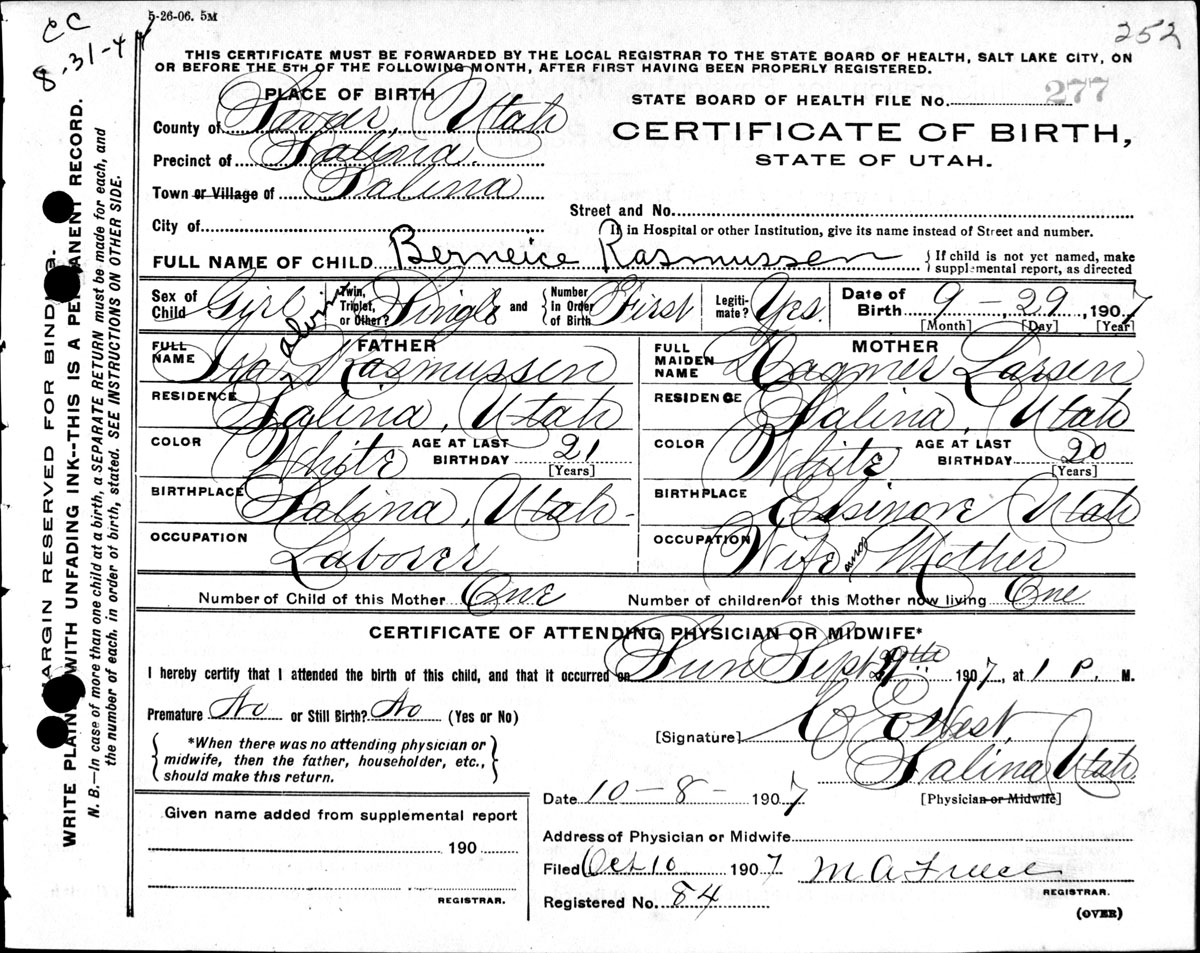 CC
8-31-4
5-26-06. 5M
252
THIS CERTIFICATE MUST BE FORWARDED BY THE LOCAL REGISTRAR TO THE STATE BOARD OF HEALTH, SALT LAKE CITY, ON
OR BEFORE THE 5TH OF THE FOLLOWING MONTH, AFTER FIRST HAVING BEEN PROPERLY REGISTERED.
MARGIN RESERVED FOR BINDING.
WRITE PLAINLY WITH UNFADING INK--THIS IS A PERMANENT RECORD.
N. B.—In case of more than one child at a birth, a SEPARATE RETURN must be made for each, and
the number of each, in order of birth, stated. SEE INSTRUCTIONS ON OTHER SIDE.
PLACE OF BIRTH
County of Sevier, Utah
Precinct of Salina.
Town or Village of Salina
City of
STATE BOARD OF HEALTH FILE No. 277
CERTIFICATE OF BIRTH,
STATE OF UTAH.
Street and No.
If in Hospital or other Institution, give its name instead of Street and number.
FULL NAME OF CHILD Berneice Rasmussen { If child is not yet named, make
supplemental report, as directed
Sex of Child Girl Twin, Triplet, or Other? Single and { Number In Order of Birth First Legitimate? Yes. Date of Birth 9 - 29, 1907
[Month] [Day] [Year]
FATHER
FULL NAME Ira Alvin Rasmussen
RESIDENCE Salina, Utah
COLOR White AGE AT LAST BIRTHDAY 21
[Years]
BIRTHPLACE Salina, Utah-
OCCUPATION Laborer
MOTHER
FULL MAIDEN NAME Dagmer Larsen
RESIDENCE Salina, Utah
COLOR White AGE AT LAST BIRTHDAY 20
[Years]
BIRTHPLACE Elsinore Utah
OCCUPATION Wife and Mother
Number of Child of this Mother One Number of children of this Mother now living One
CERTIFICATE OF ATTENDING PHYSICIAN OR MIDWIFE*
I hereby certify that I attended the birth of this child, and that it occurred on Sun Sept 29th 1907, at 1 P. M.
Premature No or Still Birth? No (Yes or No)
*When there was no attending physician or
midwife, then the father, householder, etc.,
should make this return.
[Signature] West,
Salina Utah
[Physician or Midwife]
Date 10-8- 1907
Given name added from supplemental report
190
REGISTRAR.
Address of Physician or Midwife
Filed Oct 10 1907 M A
REGISTRAR.
Registered No. 84
(OVER)